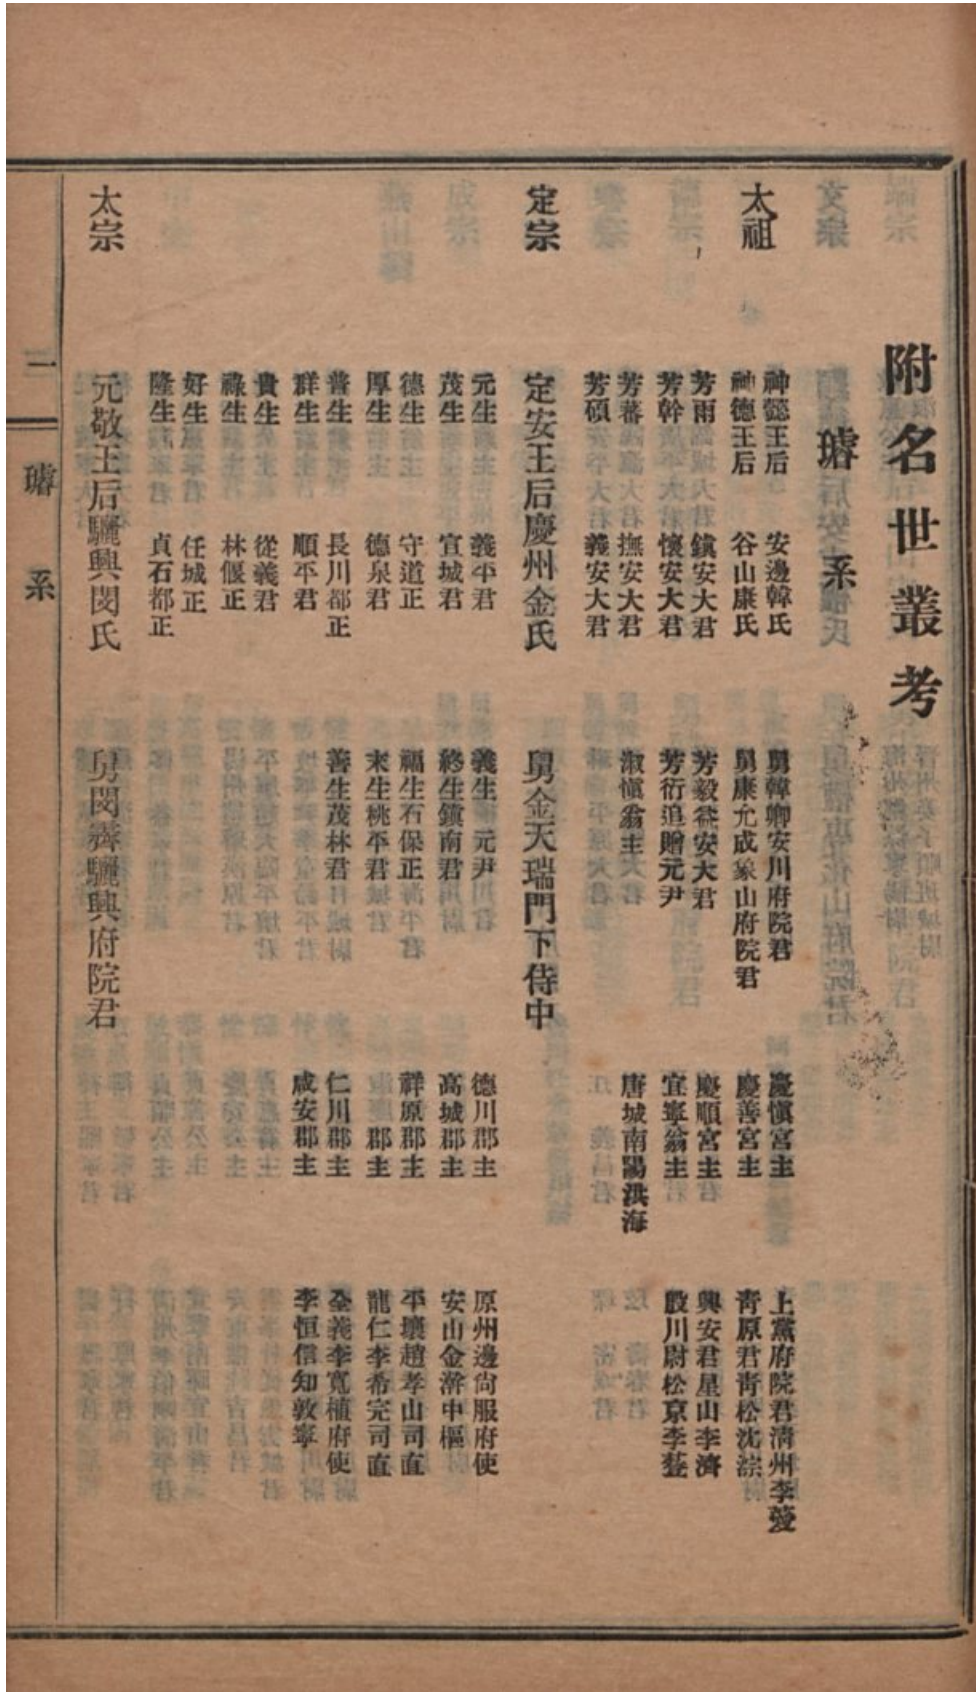 附名世叢考
璿系
太祖
神懿王后 安邊韓氏 舅韓卿安川府院君 慶愼宮主 上黨府院君淸州李薆
神德王后 谷山康氏 舅康允成象山府院君 慶善宮主 靑原君靑松沈淙
芳雨 鎭安大君 芳毅益安大君 慶順宮主 興安君星山李濟
芳幹 懷安大君 芳衍追贈元尹 宜寧翁主 啟川尉松京李薆
芳蕃 撫安大君 淑愼翁主 唐城南陽洪海
芳碩 義安大君
定宗
定安王后慶州金氏 舅金天瑞門下侍中
元生 義平君 義生 元尹 德川郡主 原州邊尙服府使
茂生 宣城君 終生鎭南君 高城郡主 安山金澣中樞
德生 守道正 福生石保正 祥原郡主 平壤趙孝山司直
厚生 德泉君 末生桃平君 郡主 龍仁李希完司直
普生 長川都正 善生茂林君 仁川郡主 全義李寬植府使
群生 順平君 咸安郡主 李恒信知敦寧
貴生 從義君
祿生 林偃正
好生 任城正
隆生 貞石都正
太宗
元敬王后驪興閔氏 舅閔霽驪興府院君
一 璿系